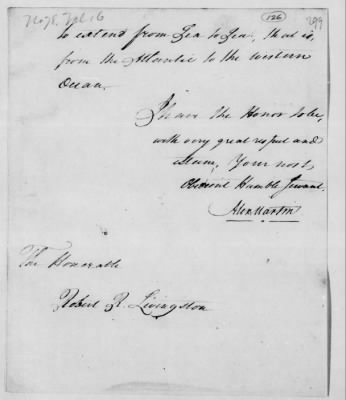 No 78, Vol. 16
126
299
to extend from Sea to Sea, that is,
from the Atlantic to the Western
Ocean.
I have the Honor to be,
with very great respect and
esteem, Your most,
Obedient Humble Servant.
Alex. Martin
The Honorable
Robert R. Livingston